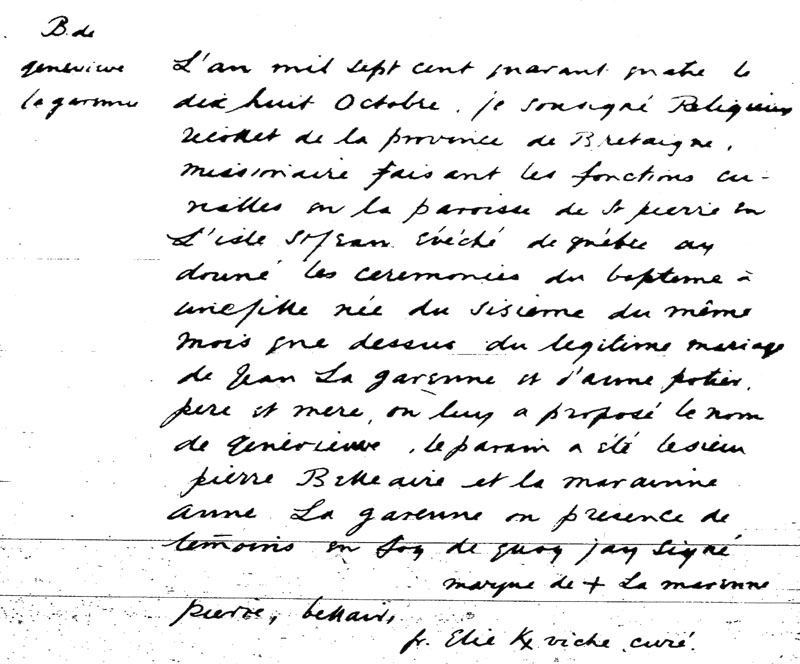 B. de
genevieve
la garenne
L'an mil sept cent quarant quatre le
dix huit Octobre, je soussigné Religieux
recollet de la province de Bretaigne,
missionaire faisant les fonctions cu-
rialles en la paroisse de St pierre en
L'isle St Jean Evêché de quebec ay
donné les ceremonies du bapteme à
une fille née du sisieme du même
mois que dessus du legitime mariage
de Jean La garenne et d'anne potier,
pere et mere, on luy a proposé le nom
de genevieuve, le parain a été le sieur
pierre Belleaire et la marainne
Anne La garenne en presence de
temoins en foy de quoy jay signé
marque de + La marenne
pierre, bellair,
fr. Elie viche curé.